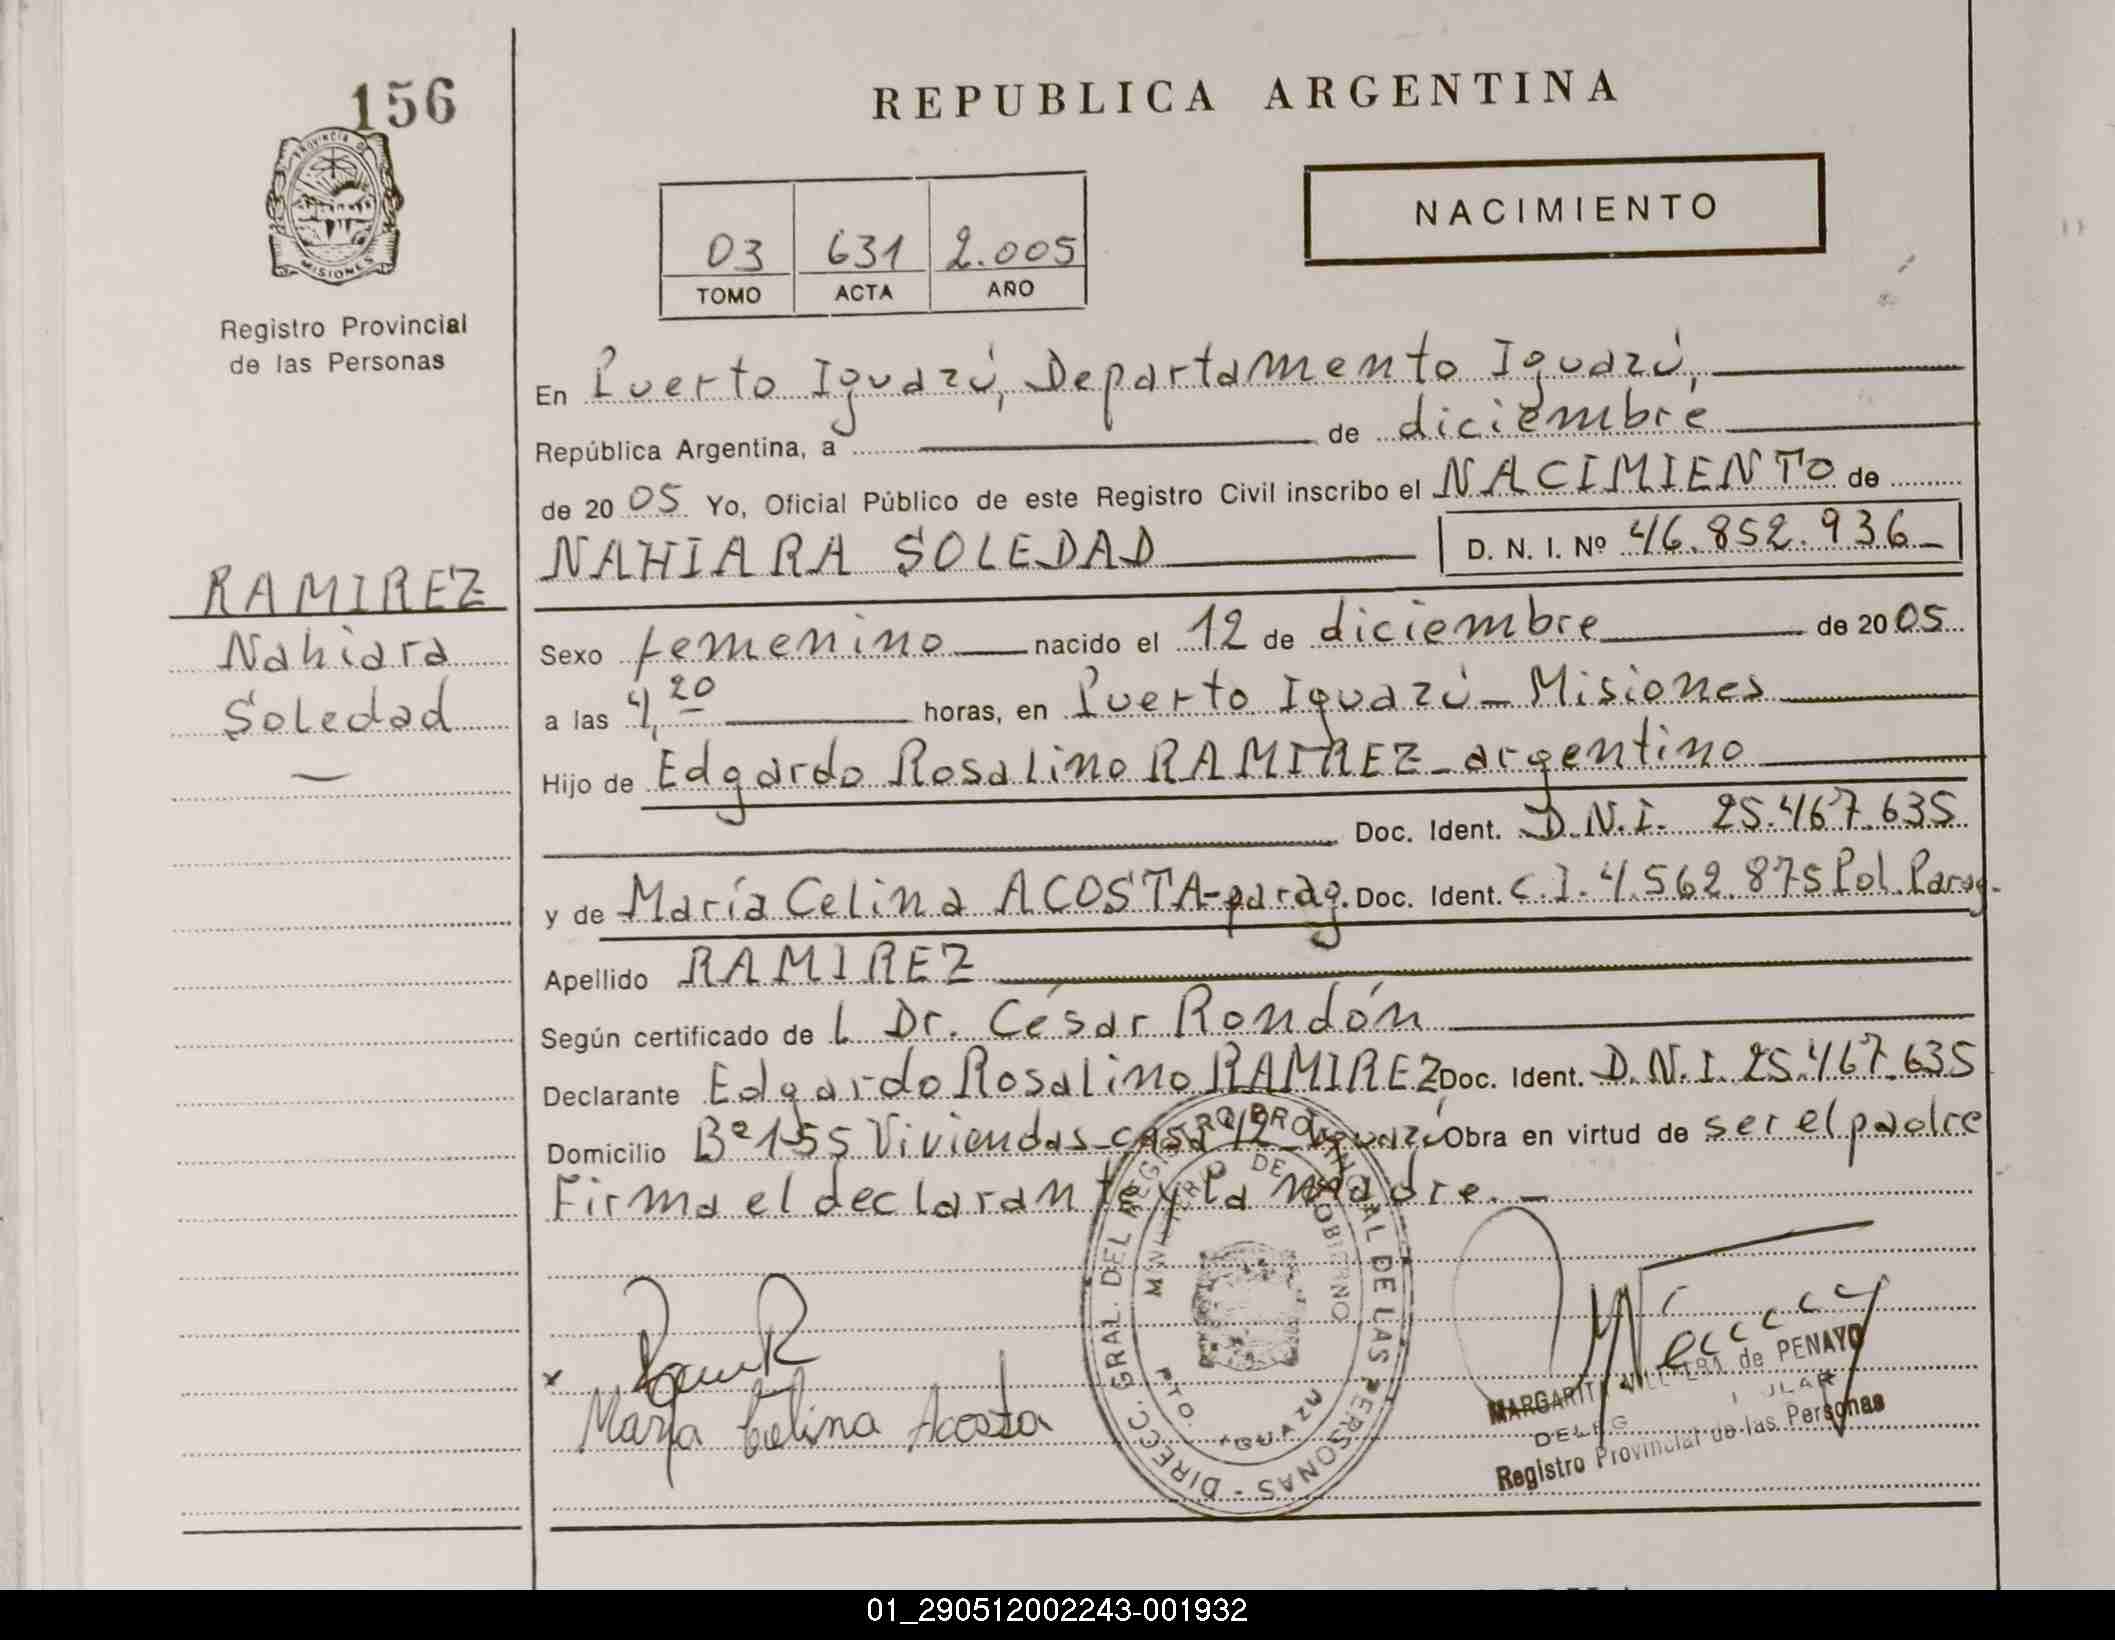 156
PROVINCIA DE
MISIONES
Registro Provincial
de las Personas
RAMIREZ
Nahiara
Soledad
REPUBLICA ARGENTINA
NACIMIENTO
03 631 2.005
TOMO ACTA AÑO
En Puerto Iguazú, Departamento Iguazú,
República Argentina, a de diciembre
de 20 05 Yo, Oficial Público de este Registro Civil inscribo el NACIMIENTO de
NAHIARA SOLEDAD D. N. I. Nº 46.852.936
Sexo femenino nacido el 12 de diciembre de 20 05
a las 4,20 horas, en Puerto Iguazú - Misiones
Hijo de Edgardo Rosalino RAMIREZ - argentino
Doc. Ident. D.N.I. 25.467.635
y de María Celina ACOSTA - parag. Doc. Ident. C.I. 4.562.875 Pol. Parag.
Apellido RAMIREZ
Según certificado de L Dr. César Rondón
Declarante Edgardo Rosalino RAMIREZ Doc. Ident. D.N.I. 25.467.635
Domicilio Bº 155 Viviendas - casa 12 - Iguazú Obra en virtud de ser el padre
Firma el declarante y la madre. -
María Celina Acosta
DIRECC. GRAL. DEL REGISTRO PROVINCIAL DE LAS PERSONAS -
MINISTERIO DE GOBIERNO
PTO. IGUAZU
MARGARITA de PENAYO
Registro Provincial de las Personas
01_290512002243-001932